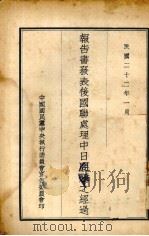 民國二十二年一月
報告書發表後國聯處理中日問題之經過
中國國民黨中央執行委員會宣傳委員會印